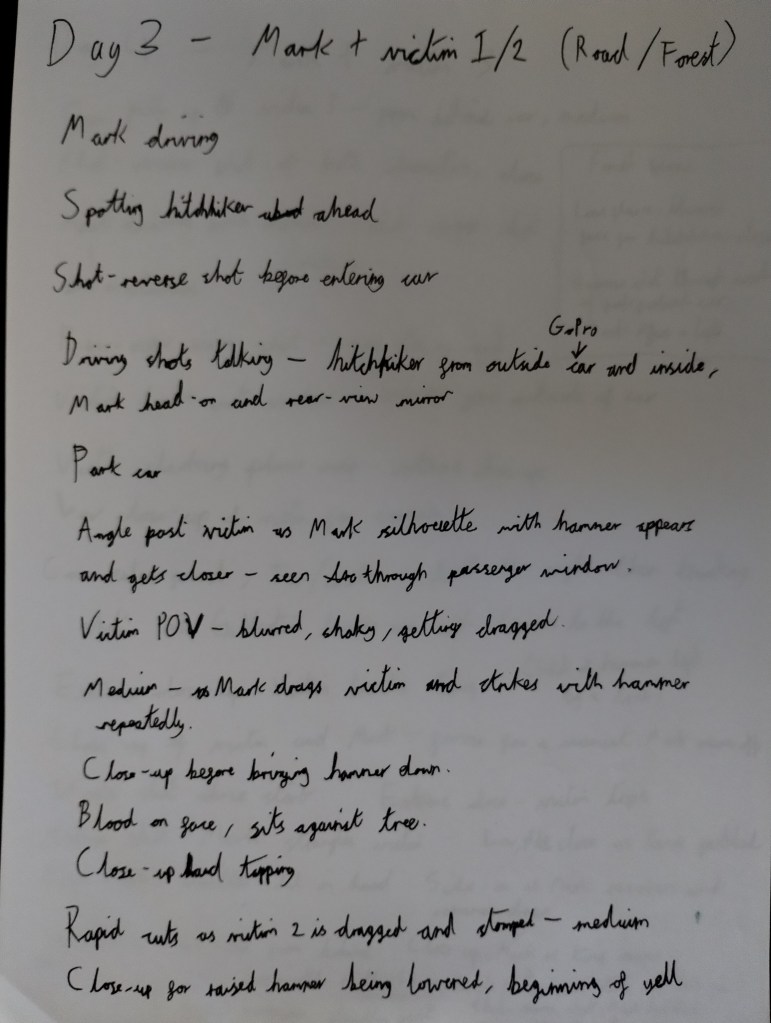 Day 3 - Mark + victim 1/2 (Road/Forest)
Mark driving
Spotting hitchhiker ahead
Shot-reverse shot before entering car
GoPro
Driving shots talking - hitchhiker from outside car and inside,
Mark head-on and rear-view mirror
Park car
Angle past victim as Mark silhouette with hammer appears
and gets closer - seen through passenger window.
Victim POV - blurred, shaky, getting dragged.
Medium - Mark drags victim and strikes with hammer
repeatedly.
Close-up before bringing hammer down.
Blood on face, sits against tree.
Close-up hand tapping
Rapid cuts as victim 2 is dragged and stomped - medium
Close-up for raised hammer being lowered, beginning of yell